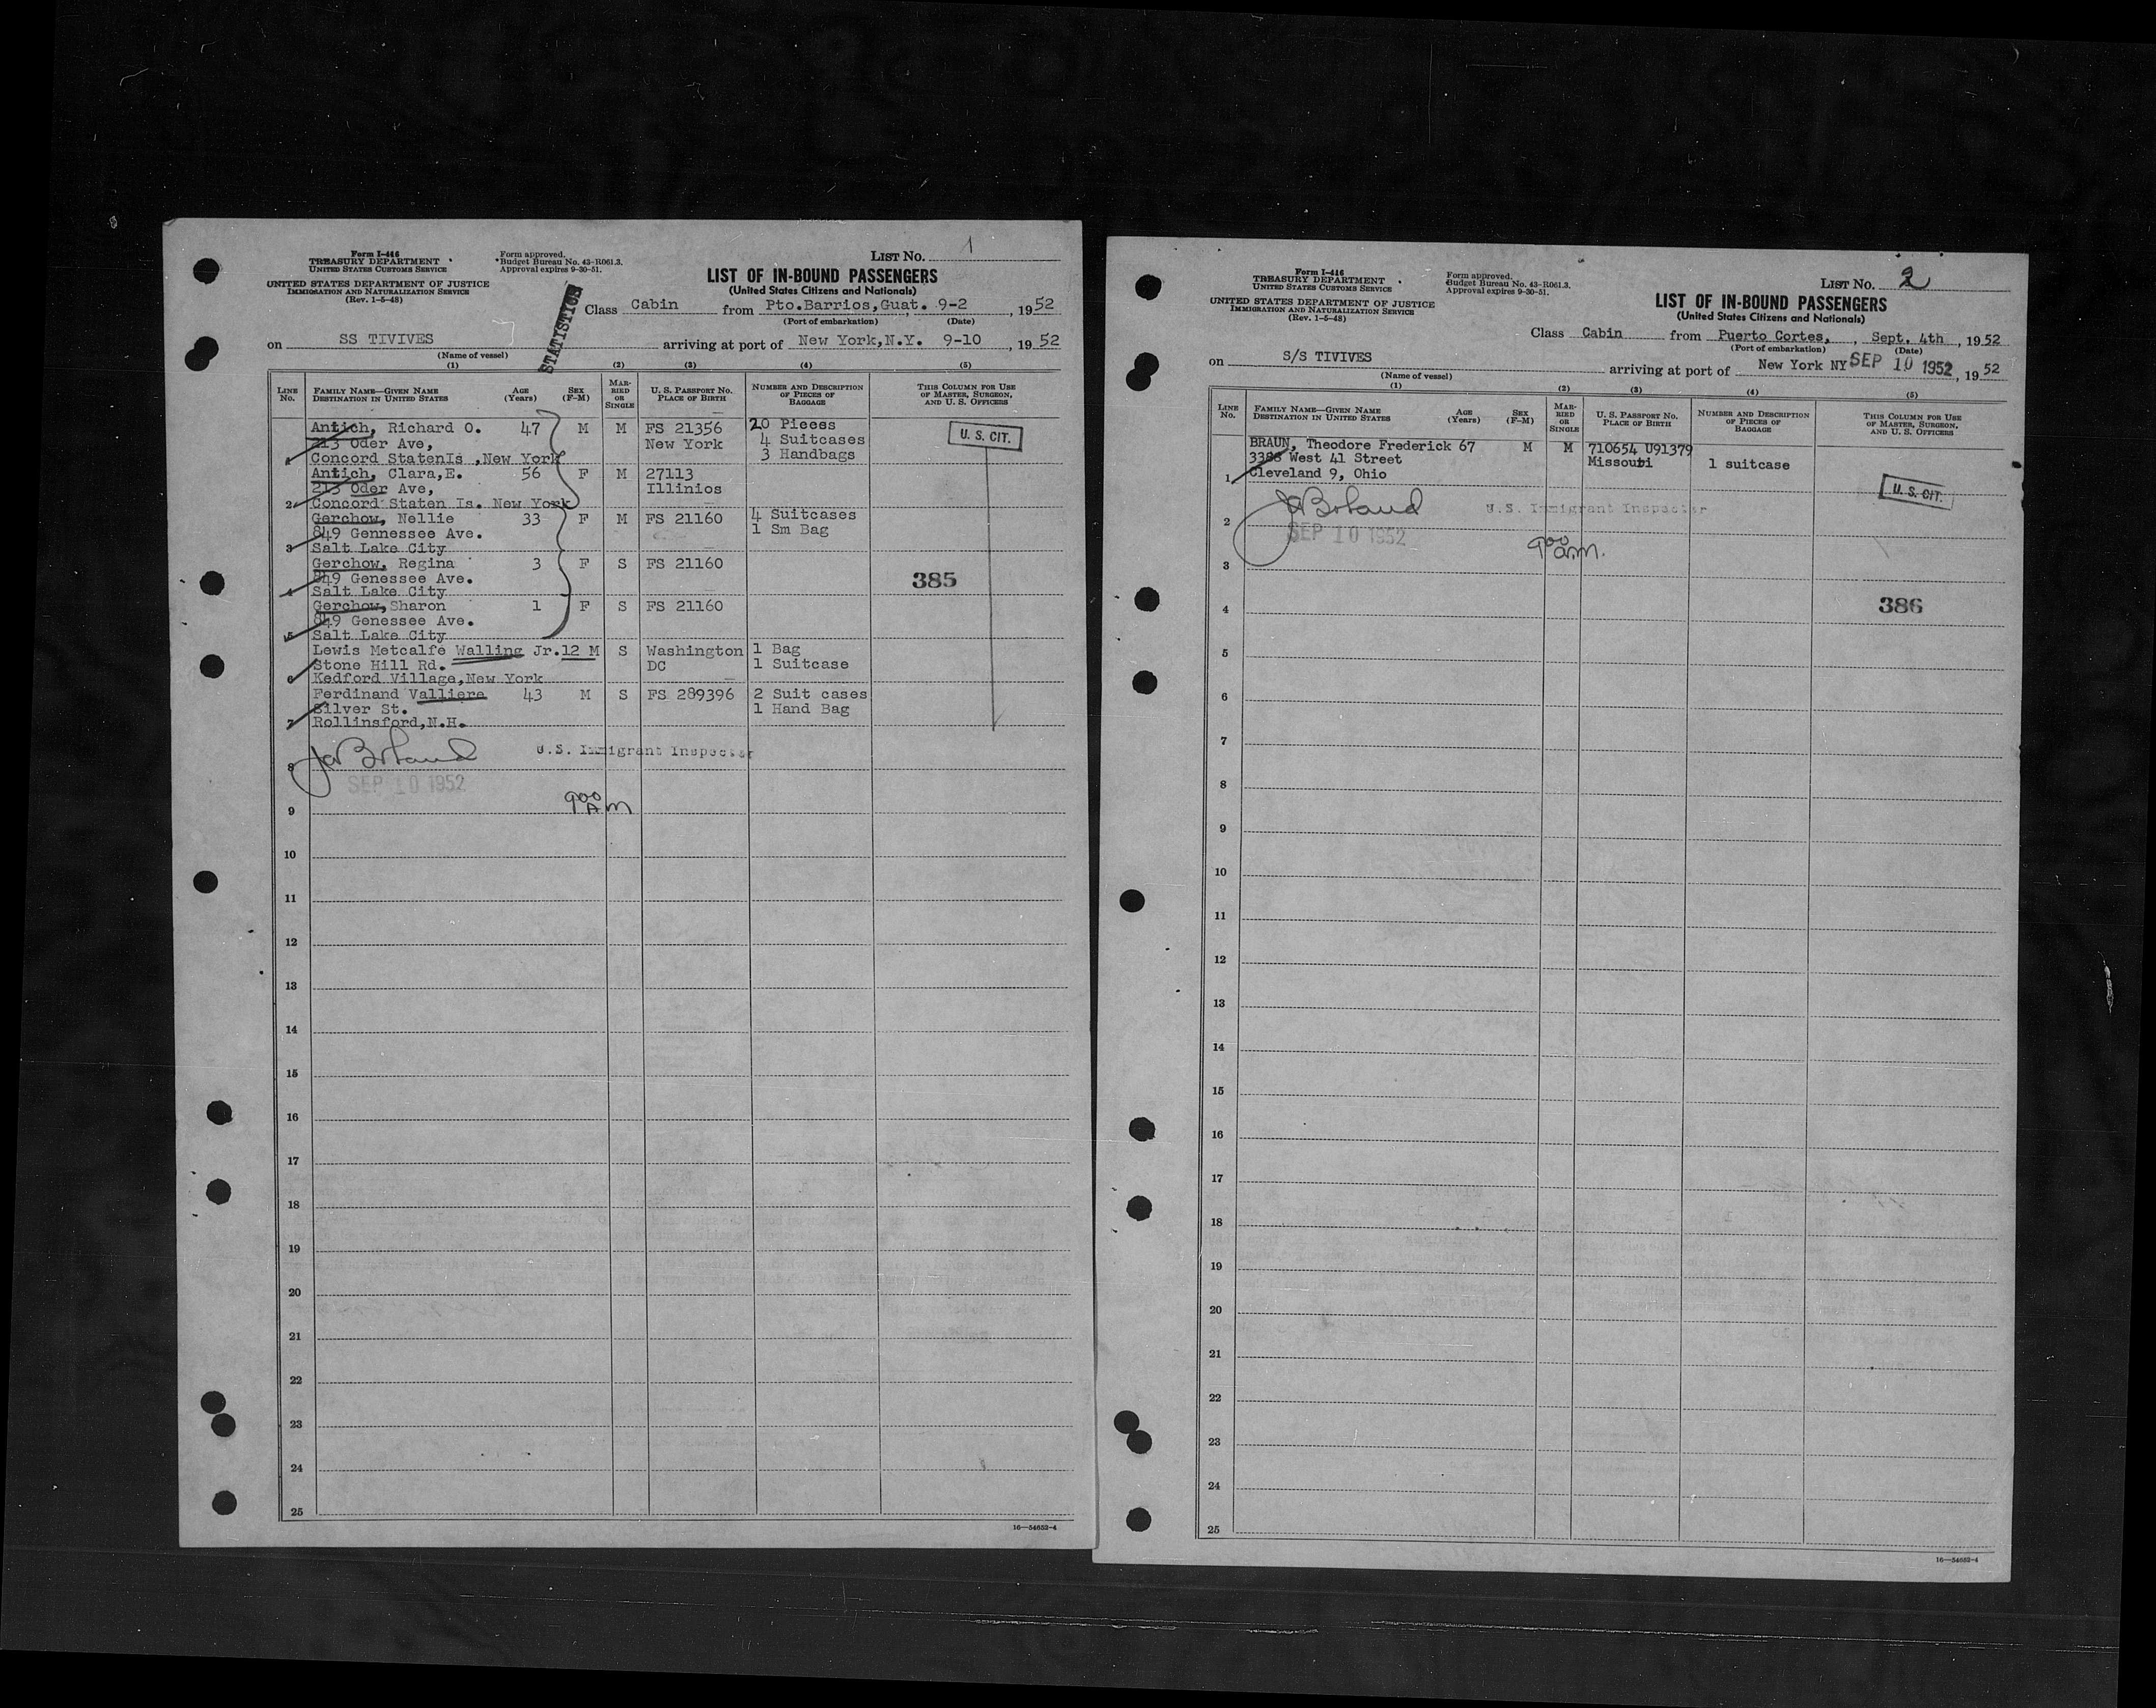 Form I-416
TREASURY DEPARTMENT
UNITED STATES CUSTOMS SERVICE
UNITED STATES DEPARTMENT OF JUSTICE
IMMIGRATION AND NATURALIZATION SERVICE
(Rev. 1-5-48)
Form approved.
Budget Bureau No. 43-R061.3.
Approval expires 9-30-51.
LIST No. 1
LIST OF IN-BOUND PASSENGERS
(United States Citizens and Nationals)
STATISTICS
Class Cabin from Pto.Barrios,Guat. 9-2, 1952
(Port of embarkation) (Date)
on SS TIVIVES arriving at port of New York,N.Y. 9-10, 1952
(Name of vessel)
(1) (2) (3) (4) (5)
LINE No. FAMILY NAME—GIVEN NAME DESTINATION IN UNITED STATES AGE (Years) SEX (F-M) MARRIED OR SINGLE U. S. PASSPORT No. PLACE OF BIRTH NUMBER AND DESCRIPTION OF PIECES OF BAGGAGE THIS COLUMN FOR USE OF MASTER, SURGEON, AND U. S. OFFICERS
Antich, Richard O. 47 M M FS 21356 20 Pieces
213 Oder Ave, New York 4 Suitcases U. S. CIT.
1 Concord StatenIs ,New York 3 Handbags
Antich, Clara,E. 56 F M 27113
213 Oder Ave, Illinios
2 Concord Staten Is. New York
Gerchow, Nellie 33 F M FS 21160 4 Suitcases
849 Gennessee Ave. 1 Sm Bag
3 Salt Lake City
Gerchow, Regina 3 F S FS 21160
849 Genessee Ave. 385
4 Salt Lake City
Gerchow, Sharon 1 F S FS 21160
849 Genessee Ave.
5 Salt Lake City
Lewis Metcalfe Walling Jr.12 M S Washington 1 Bag
Stone Hill Rd. DC 1 Suitcase
6 Kedford Village,New York
Ferdinand Valliere 43 M S FS 289396 2 Suit cases
Silver St. 1 Hand Bag
7 Rollinsford,N.H.
U.S. Immigrant Inspector
8
SEP 10 1952
9 9 00 AM
10
11
12
13
14
15
16
17
18
19
20
21
22
23
24
25
16—54652-4
Form I-416
TREASURY DEPARTMENT
UNITED STATES CUSTOMS SERVICE
UNITED STATES DEPARTMENT OF JUSTICE
IMMIGRATION AND NATURALIZATION SERVICE
(Rev. 1-5-48)
Form approved.
Budget Bureau No. 43-R061.3.
Approval expires 9-30-51.
LIST No. 2
LIST OF IN-BOUND PASSENGERS
(United States Citizens and Nationals)
Class Cabin from Puerto Cortes, , Sept. 4th, 1952
(Port of embarkation) (Date)
on S/S TIVIVES arriving at port of New York NY SEP 10 1952, 1952
(Name of vessel)
(1) (2) (3) (4) (5)
LINE No. FAMILY NAME—GIVEN NAME DESTINATION IN UNITED STATES AGE (Years) SEX (F-M) MARRIED OR SINGLE U. S. PASSPORT No. PLACE OF BIRTH NUMBER AND DESCRIPTION OF PIECES OF BAGGAGE THIS COLUMN FOR USE OF MASTER, SURGEON, AND U. S. OFFICERS
BRAUN, Theodore Frederick 67 M M 710654 U91379
3388 West 41 Street Missouri 1 suitcase
1 Cleveland 9, Ohio U. S. CIT.
U.S. Immigrant Inspector
2
SEP 10 1952
9 00 a.m.
3
4 386
5
6
7
8
9
10
11
12
13
14
15
16
17
18
19
20
21
22
23
24
25
16—54652-4